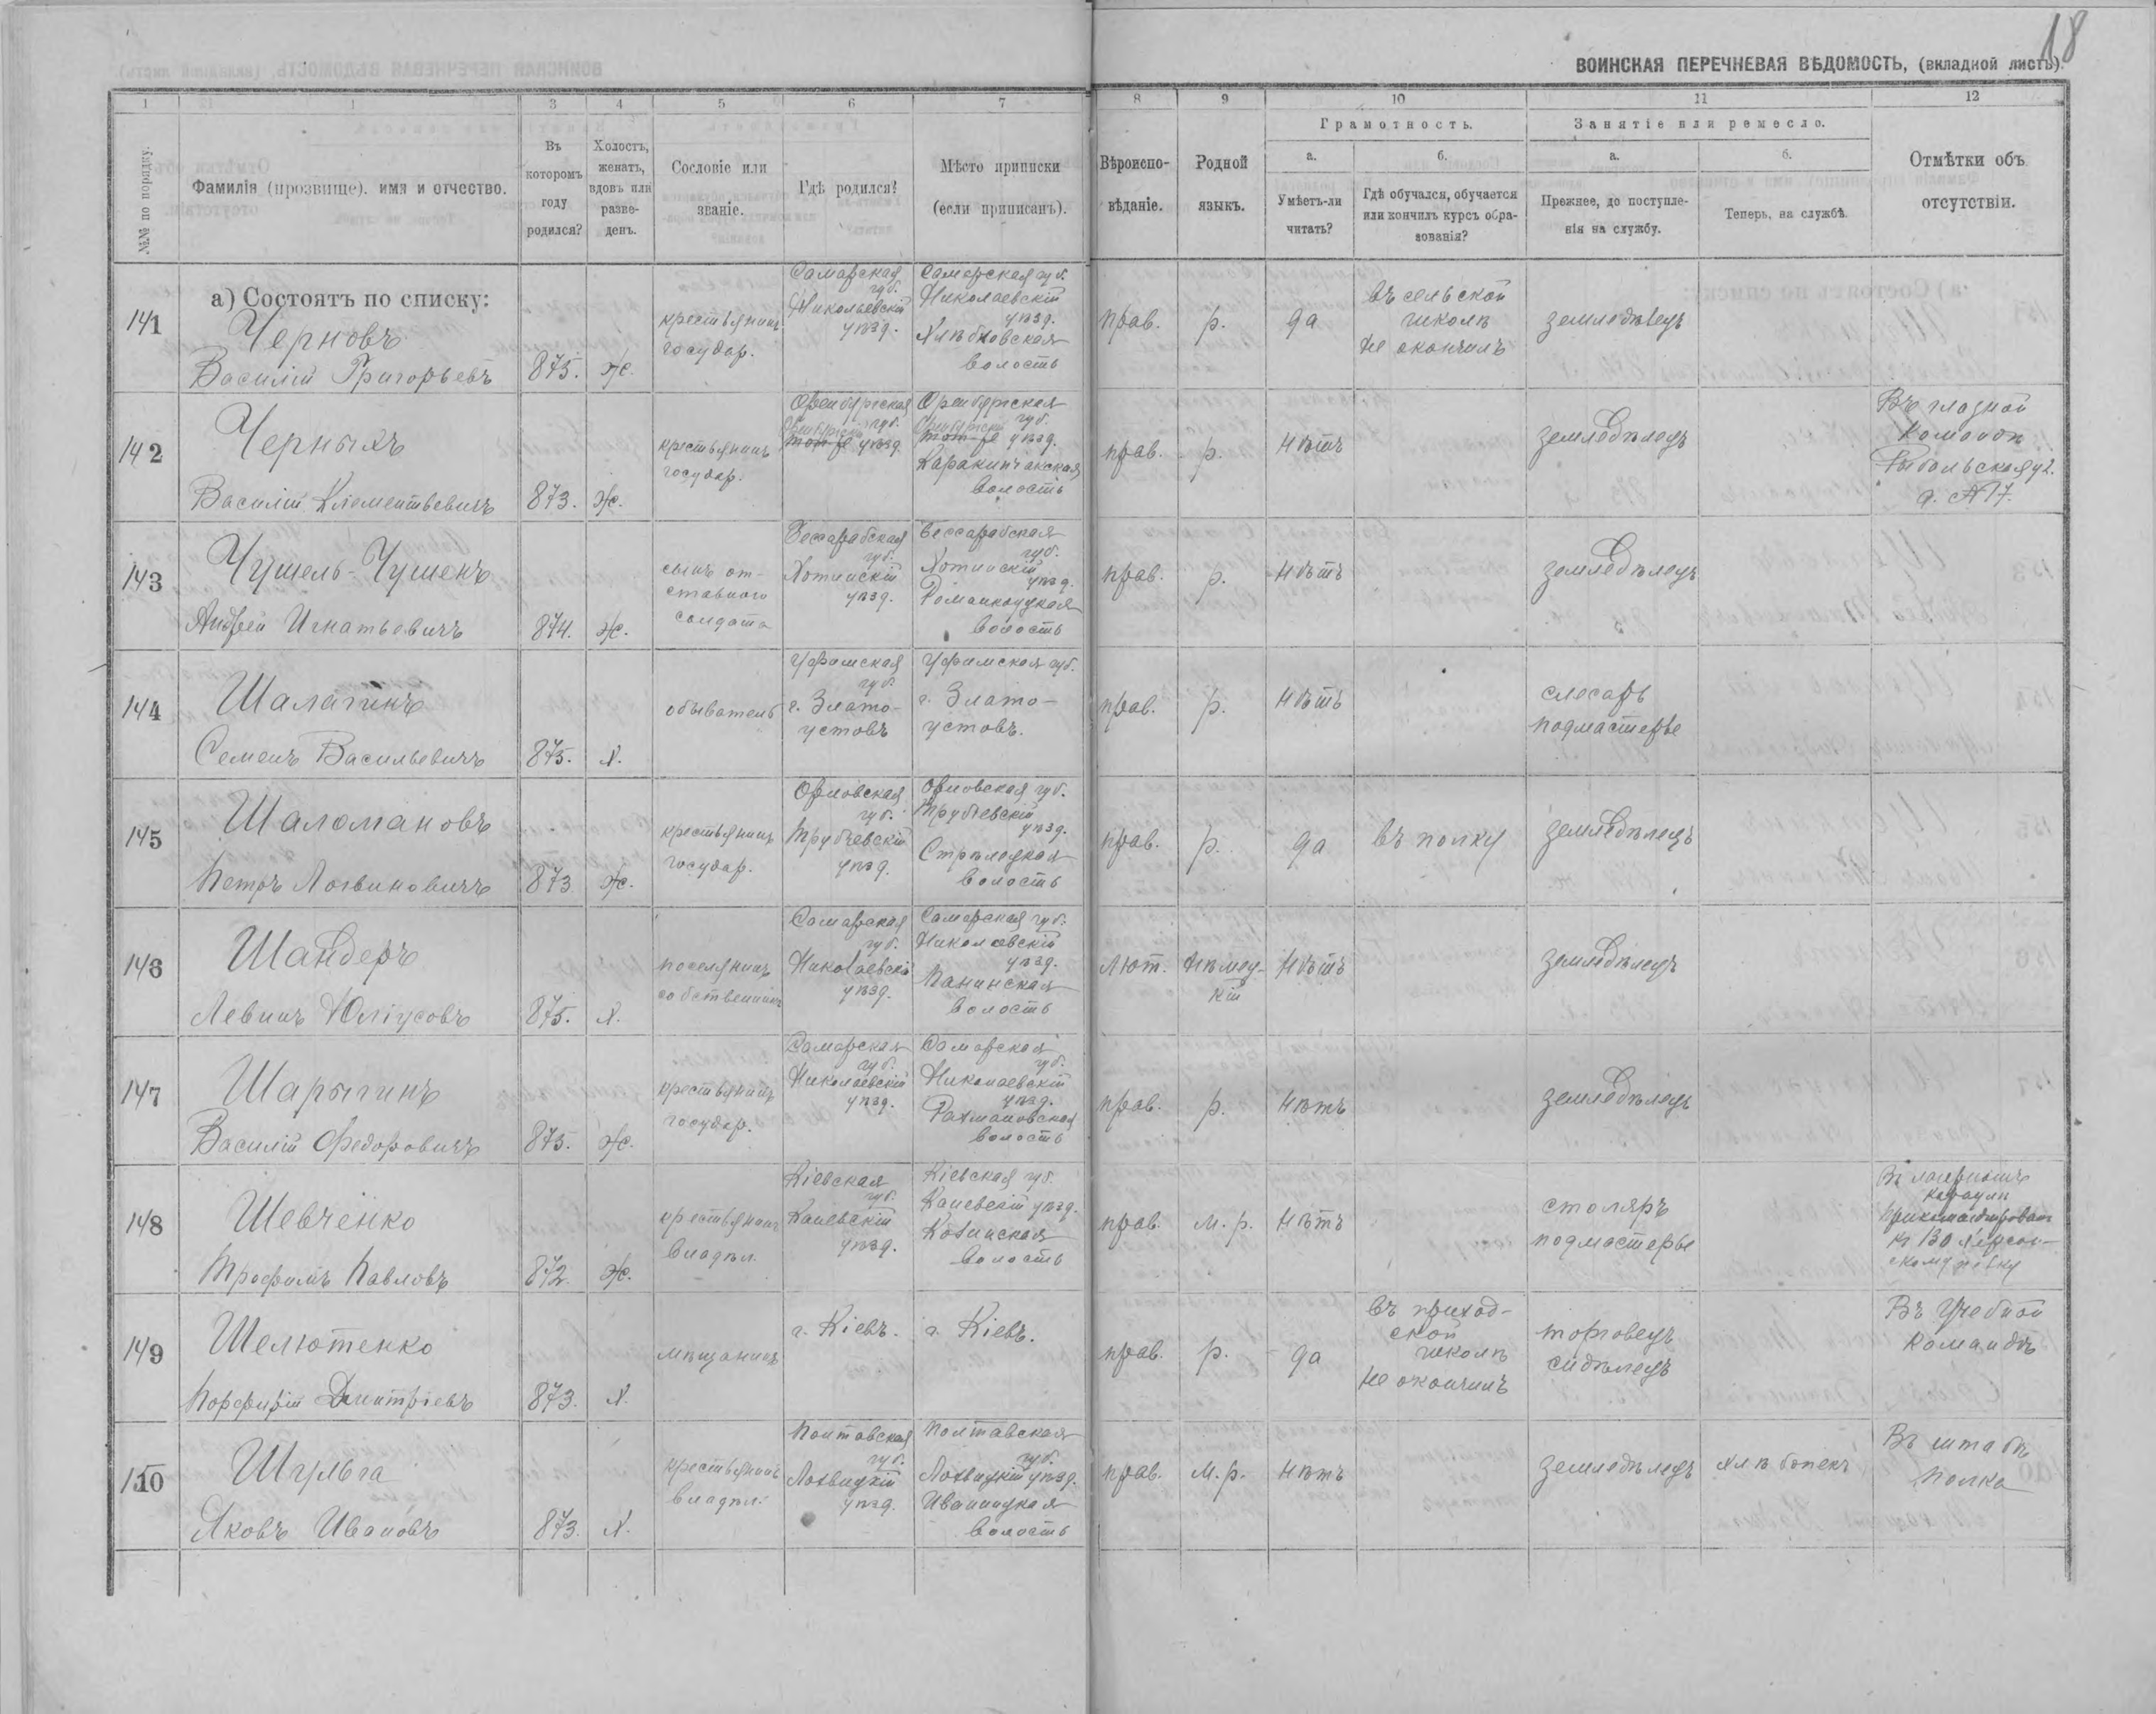 18
ВОИНСКАЯ ПЕРЕЧНЕВАЯ ВѢДОМОСТЬ, (вкладной листъ).
1 1 3 4 5 6 7 8 9 10 11 12
№№ по порядку.
Фамилія (прозвище). имя и отчество.
Въ которомъ году родился?
Холостъ, женатъ, вдовъ или разведенъ.
Сословіе или званіе.
Гдѣ родился?
Мѣсто приписки (если приписанъ).
Вѣроисповѣданіе.
Родной языкъ.
Грамотность.
а. Умѣетъ-ли читать?
б. Гдѣ обучался, обучается или кончилъ курсъ образованія?
Занятіе или ремесло.
а. Прежнее, до поступленія на службу.
б. Теперь, на службѣ.
Отмѣтки объ отсутствіи.
а) Состоятъ по списку:
141 Черновъ
Василій Григорьевъ 875. ж.
крестьянинъ государ.
Самарская губ. Николаевскій уѣзд.
Самарская губ. Николаевскій уѣзд. Хлѣбновская волость
прав. р. да
въ сельской школѣ не окончилъ
земледѣлецъ
142 Черныхъ
Василій Клементьевичъ 873. ж.
крестьянинъ государ.
Оренбургская губ. Оренбургскій уѣзд.
Оренбургская губ. Оренбургскій уѣзд. Каракипчакская волость
прав. р. нѣтъ
земледѣлецъ
Въ глазной
Рыбальская ул.
д. №17.
143 Чушель-Чушенъ
Андрей Игнатьевичъ 874. ж.
сынъ отставного солдата
Бессарабская губ. Хотинскій уѣзд.
Бессарабская губ. Хотинскій уѣзд. Романкоуцкая волость
прав. р. нѣтъ
земледѣлецъ
144 Шалагинъ
Семенъ Васильевичъ 875. х.
обыватель
Уфимская губ. г. Златоустовъ
Уфимская губ. г. Златоустовъ.
прав. р. нѣтъ
слесарь подмастерье
145 Шаломановъ
Петръ Логвиновичъ 873 ж.
крестьянинъ государ.
Орловская губ. Трубчевскій уѣзд.
Орловская губ. Трубчевскій уѣзд. Стрѣлецкая волость
прав. р. да
въ полку
земледѣлецъ
146 Шандеръ
Левинъ Юліусовъ 875. х.
поселянинъ собственникъ
Самарская губ. Николаевскій уѣзд.
Самарская губ. Николаевскій уѣзд. Панинская волость
Лют. Нѣмецкій нѣтъ
земледѣлецъ
147 Шарыгинъ
Василій Федоровичъ 875. ж.
крестьянинъ государ.
Самарская губ. Николаевскій уѣзд.
Самарская губ. Николаевскій уѣзд. Рахмановская волость
прав. р. нѣтъ
земледѣлецъ
148 Шевченко
Трофимъ Павловъ 872. ж.
крестьянинъ владѣл.
Кіевская губ. Каневскій уѣзд.
Кіевская губ. Каневскій уѣзд. волость
прав. м. р. нѣтъ
столяръ подмастерье
Въ лагерномъ
караулѣ
прикомандирован
къ 130 Херсонскому полку
149 Шелютенко
Порфирій Дмитріевъ 873. х.
мѣщанинъ
г. Кіевъ.
г. Кіевъ.
прав. р. да
въ приходской школѣ не окончилъ
торговецъ сидѣлецъ
Въ Учебной Командѣ
150 Шульга
Яковъ Ивановъ 873. х.
крестьянинъ владѣл.
Полтавская губ. Лохвицкій уѣзд.
Полтавская губ. Лохвицкій уѣзд. Иваницкая волость
прав. м. р. нѣтъ
земледѣлецъ
хлѣбопекъ
Въ штабѣ полка